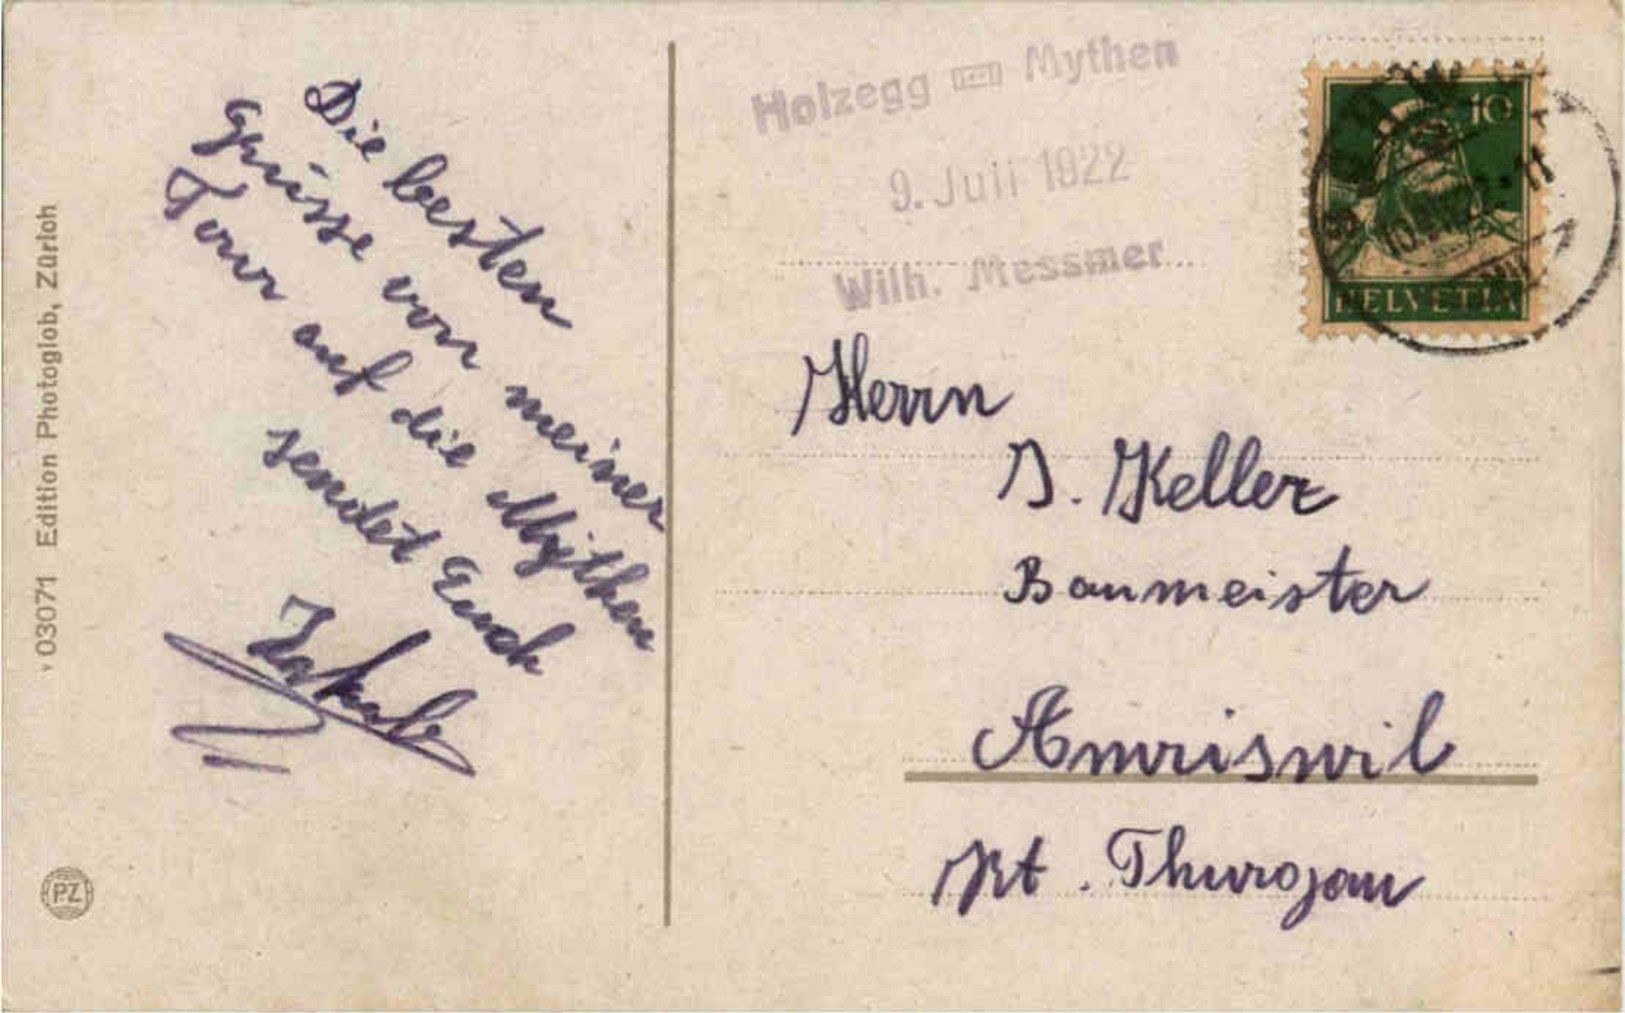 Die besten
Grüsse von meiner
Tour auf die Mythen
sendet Euch
Jakob
Holzegg Mythen
9. Juli 1922
Wilh. Messmer
10
HELVETIA
Herrn
J. Keller
Baumeister
Amriswil
Kt. Thurgau
v 03071 Edition Photoglob, Zürich
PZ